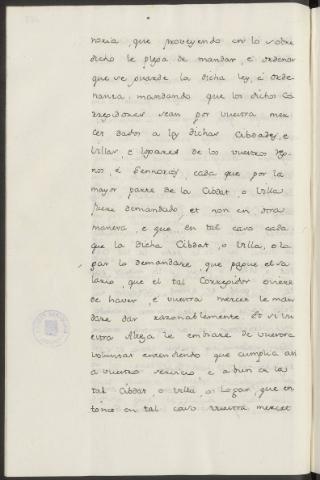 noria, que proveyendo en lo sobre
dicho le plega de mandar, é ordenar
que se guarde la dicha ley, é orde
nanza, mandando que los dichos Co
rregidores sean por vuestra mer
cet dados a las dichas Cibdades, e
Villas, e logares de los vuestros rey
nos, é Sennorios, cada que por la
mayor parte de la Cibdat, o Villa
fuere demandado, et non en otra
manera, e que en tal caso cada
que la dicha Cibdat, o Villa, o lo
gar lo demandare, que pague el sa
lario, que el tal Corregidor oviere
de haver, é vuestra merced le man
dare dar razonablemente. So si vu
estra Alteza le embiare de vuestra
voluntat entendiendo que cumplia asi
a vuestro servicio, e a bien de la
tal Cibdat, o Villa, o Logar, que en
tonce en tal caso vuestra mercet